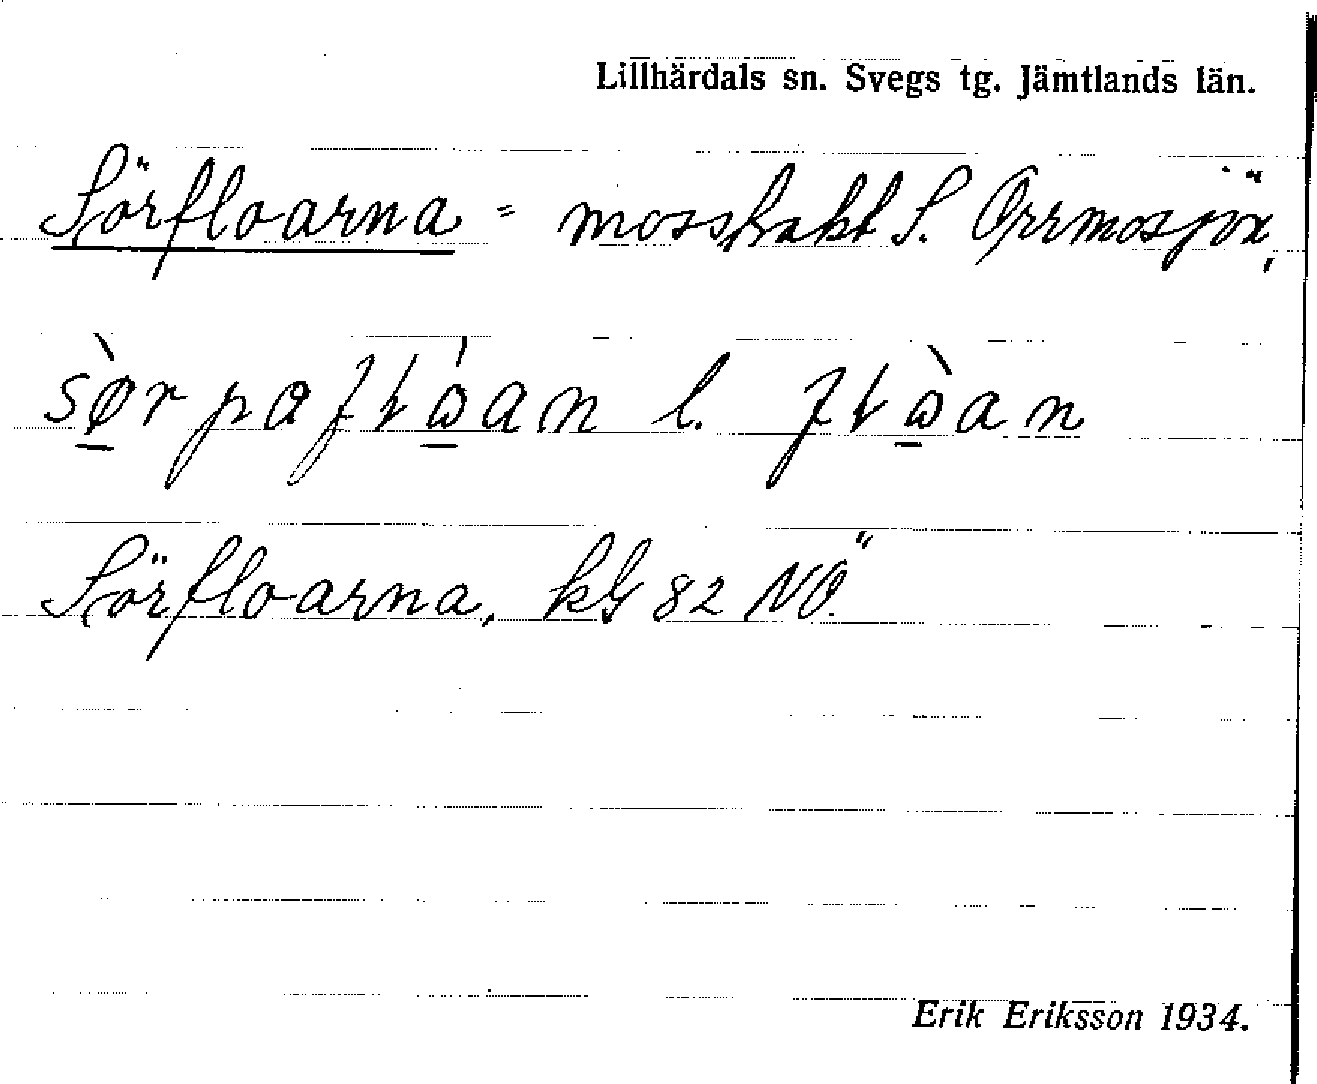 Lillhärdals sn. Svegs tg. Jämtlands län.
Sörfloarna = mosstrakt S. Orrmosjön,
sø̀rpafłɷ́an l. fłɷ̀an
Sörfloarna, kG 82 NÖ.
Erik Eriksson 1934.